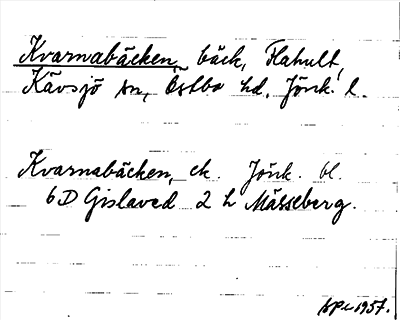 Kvarnabäcken, bäck, Flahult,
Kävsjö sn, Östbo hd, Jönk. l.
Kvarnabäcken, ek. Jönk. bl.
6D Gislaved 2 h Mässeberg.
1957.